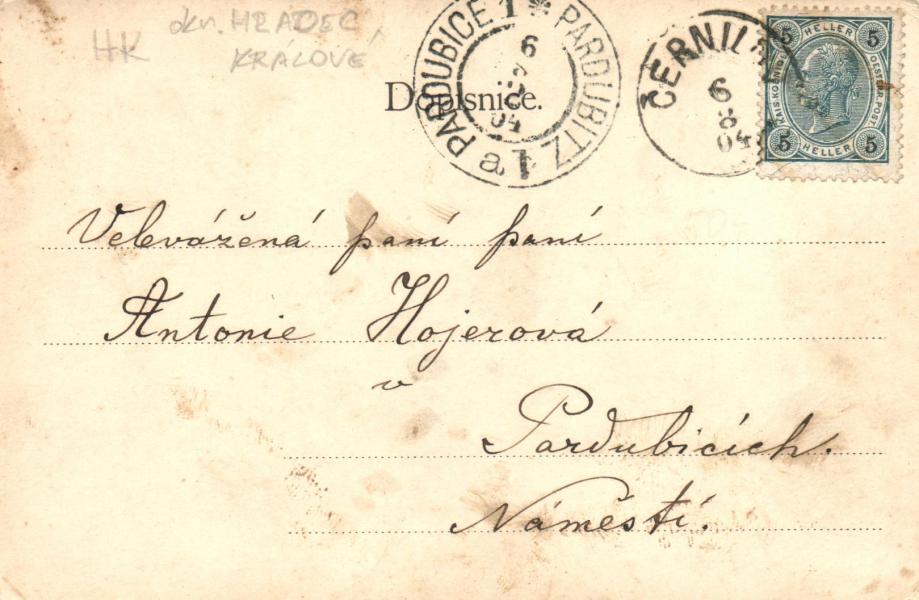 HK okr. HRADEC
KRÁLOVÉ
Dopisnice.
PARDUBICE 1 * PARDUBITZ 1 a
6
8
04
ČERNIL
6
8
04
5 HELLER 5
KAIS. KOENIGL. OESTERR. POST
5 HELLER 5
Velevážená paní paní
Antonie Hojerová
v
Pardubicích.
Náměstí.